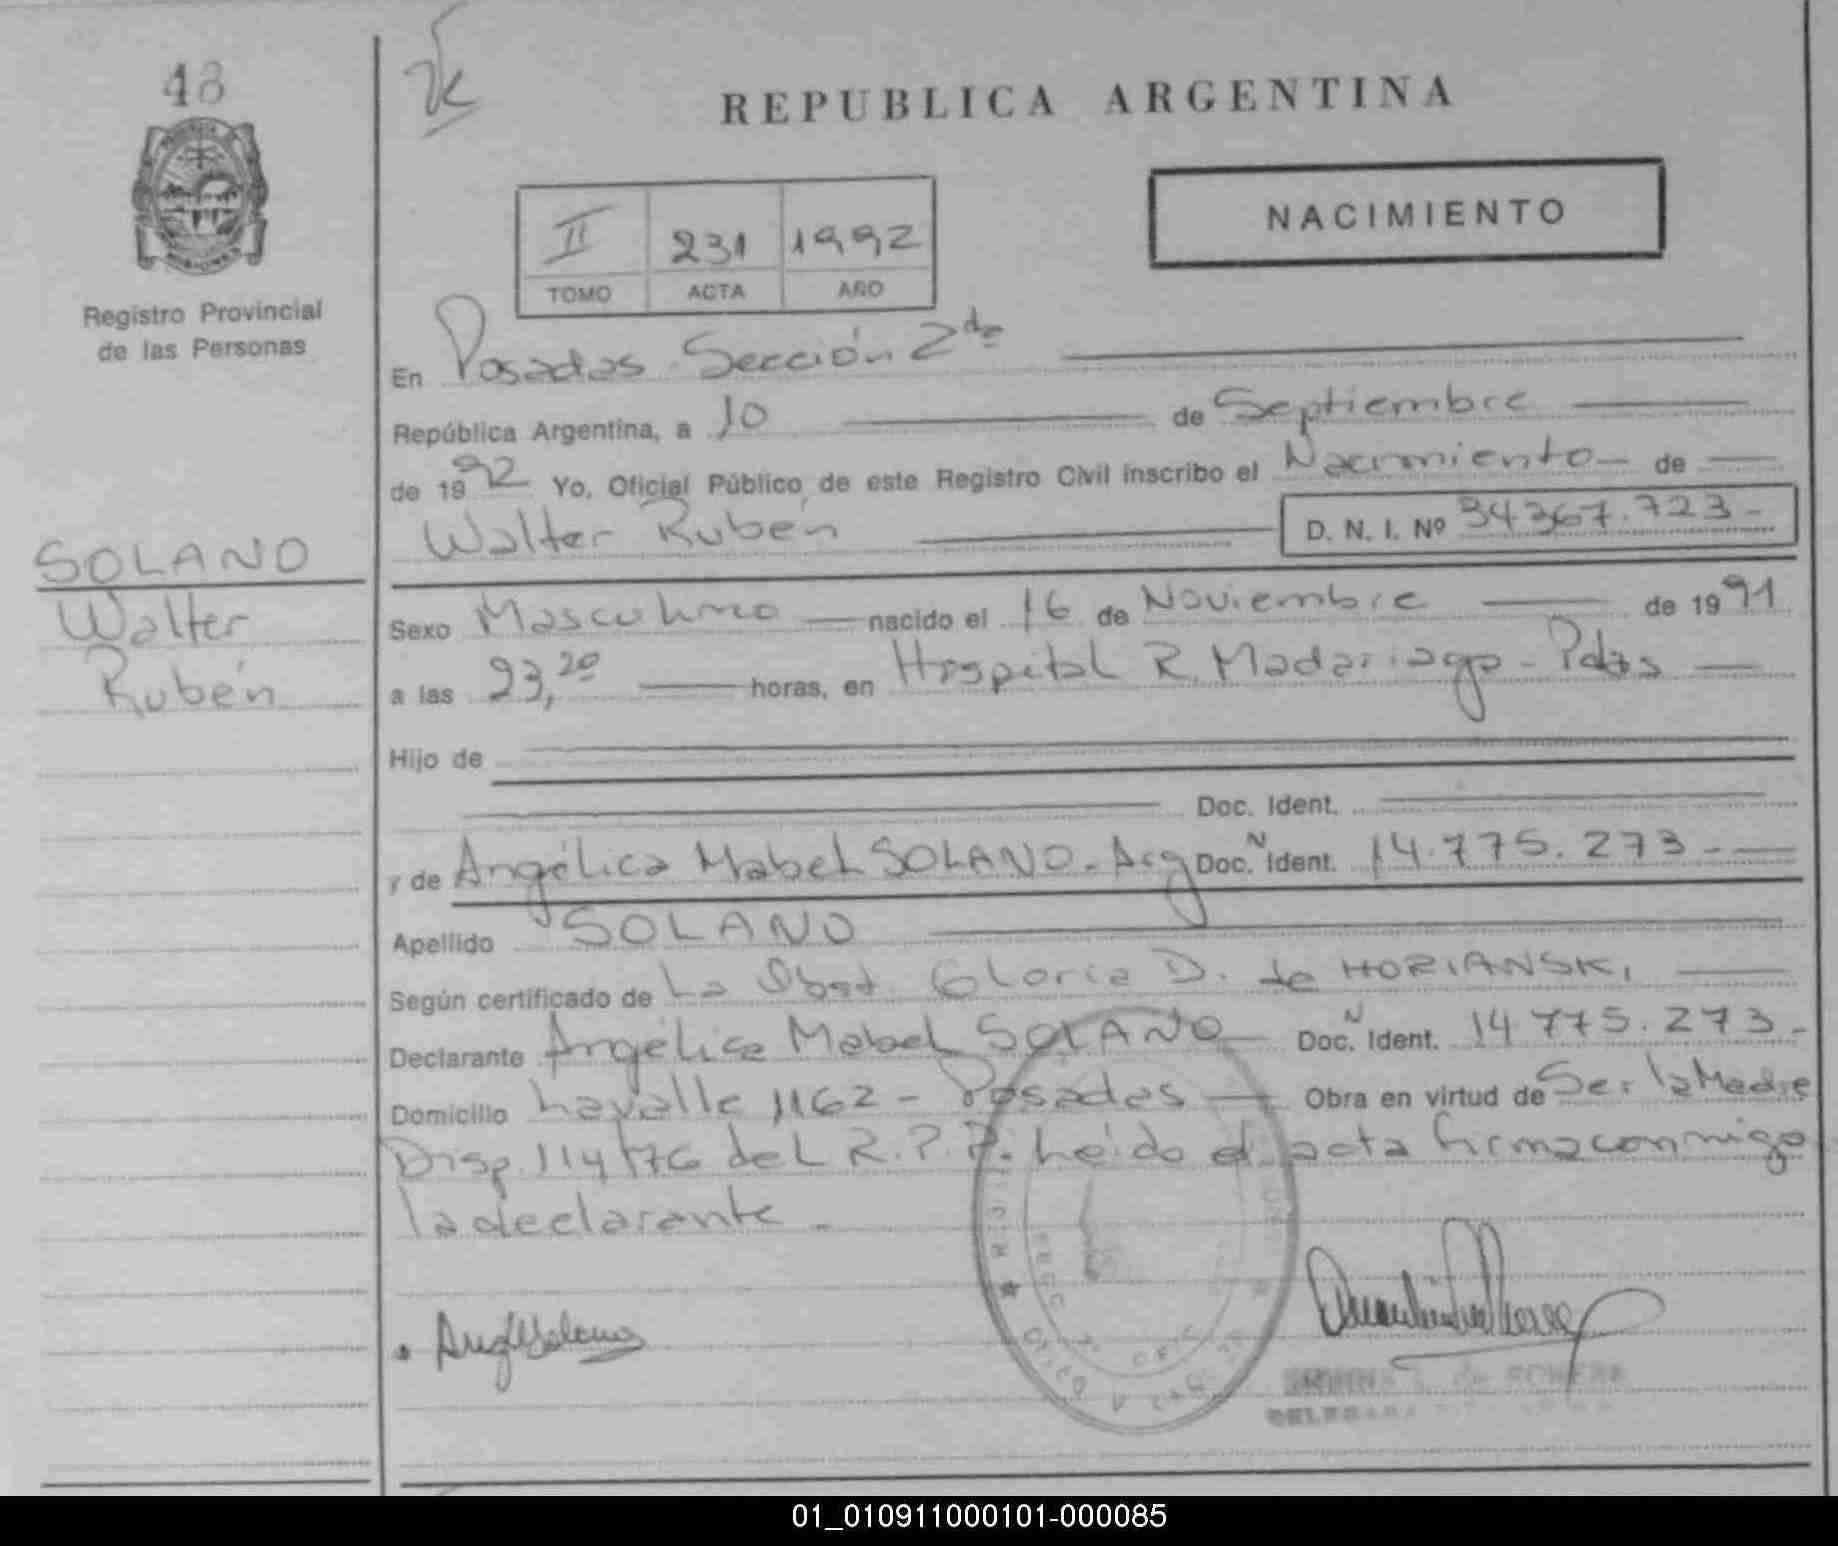 48
REPUBLICA ARGENTINA
NACIMIENTO
II 231 1992
TOMO ACTA AÑO
Registro Provincial
de las Personas
SOLANO
Walter
Rubén
En Posadas Sección 2da
República Argentina, a 10 de Septiembre
de 1992 Yo, Oficial Público de este Registro Civil inscribo el Nacimiento de
Walter Rubén D. N. I. Nº 34367.723-
Sexo Masculino nacido el 16 de Noviembre de 1991
a las 23,20 horas, en Hospital R. Madariaga - Pdas
Hijo de
Doc. Ident.
y de Angélica Mabel SOLANO - Arg Doc. N Ident. 14.775.273-
Apellido SOLANO
Según certificado de La Obst. Gloria D. de HORIANSKI
Declarante Angélica Mabel SOLANO Doc. N Ident. 14 775.273-
Domicilio Lavalle 1162 - Posadas Obra en virtud de Ser la Madre
Disp. 114/76 del R.P.P. Leído el acta firma conmigo
la declarante -
de ROMERO
01_010911000101-000085